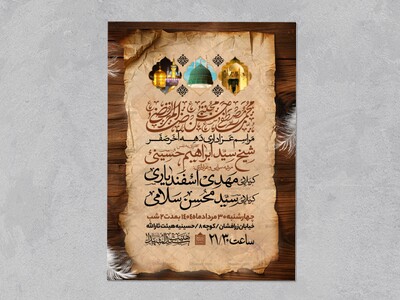 مراسم عزاداری دهه آخر صفر
شیخ سید ابراهیم حسینی
کربلایی مهدی اسفندیاری
کربلایی سید محسن سلامی
چهارشنبه ۳۰ مردادماه ۱۴۰۴ بمدت ۲ شب
خیابان زرافشان / کوچه ۸ / حسینیه هیئت ثارالله
ساعت ۲۱/۳۰